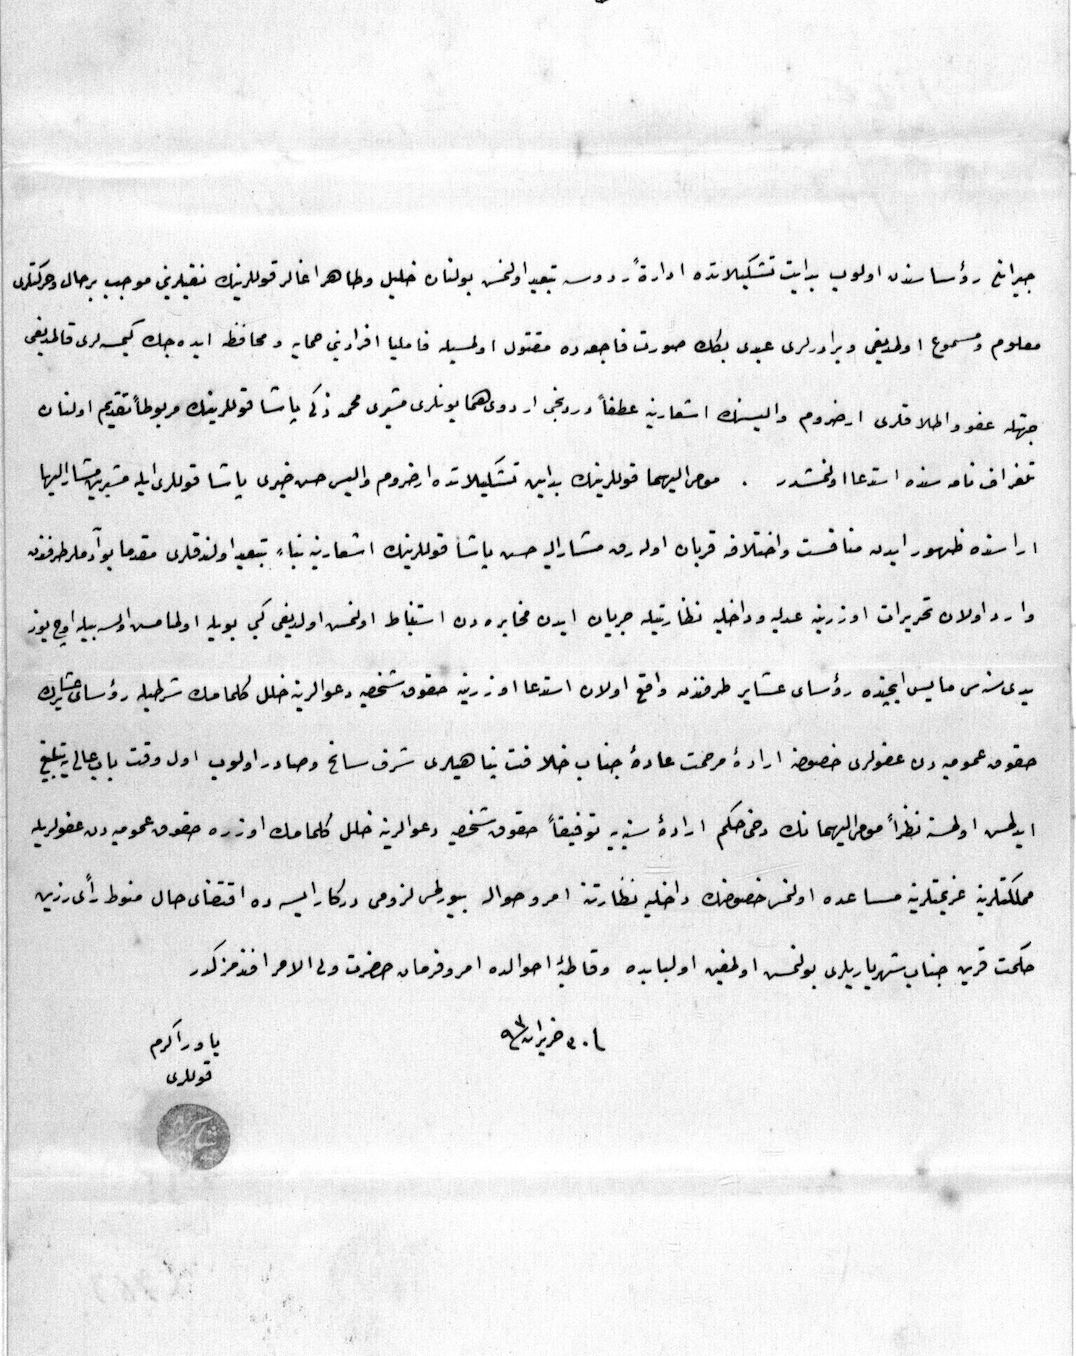 جبرانلی رؤساسندن اولوب بدایت تشکیلاتده ادارةً ردوسه تبعید اولنمش بولنان خلیل وطاهر اغالر قوللرینك نفیلرینی موجب برحال وحركتلری
معلوم ومسموع اولمدیغی وبرادرلری عبدی بكك صورت فاجعه ده مقتول اولمسیله فامیلیا افرادینی حمایه ومحافظه ایده جك كیمسه لری قالمدیغی
جهتله عفو واطلاقلری ارضروم والیسنك اشعارینه عطفاً دردنجی اردوی همایونلری مشیری محمد زكی پاشا قوللرینك مربوطاً تقدیم اولنان
تلغرافنامه سنده استدعا اولنمشدر . مومی الیهما قوللرینك بدایت تشكیلاتده ارضروم والیسی حسن خیری پاشا قوللری ایله مشیر مشار الیها
اراسنده ظهور ایدن منافست واختلافه قربان اوله رق مشار الیه حسن پاشا قوللرینك اشعارینه بناءً تبعید اولندقلری مقدما بو آدملر طرفندن
وارد اولان تحریرات اوزرینه عدلیه وداخلیه نظارتیله جریان ایدن مخابره دن استنباط اولنمش اولدیغی كبی بویله اولمامش اولسه بیله اوچیوز
یدی سنه سی مایس ایچنده رؤسای عشایر طرفندن واقع اولان استدعا اوزرینه حقوق شخصیه دعوالرینه خلل كلمامك شرطیله رؤسای عشایرك
حقوق عمومیه دن عفولری خصوصنه ارادهٔ مرحمت عادهٔ جناب خلافتپناهیلری شرف سانح وصادر اولوب اول وقت باب عالی یه تبلیغ
ایدلمش اولمسنه نظراً مومی الیهمانك دخی حكم ارادهٔ سنیه یه توفیقاً حقوق شخصیه دعوالرینه خلل كلمامك اوزره حقوق عمومیه دن عفولریله
مملكتلرینه عزیمتلرینه مساعده اولنمسی خصوصنك داخلیه نظارتنه امر وحواله بیورلمسی لزومی دركار ایسه ده اقتضای حال منوط رأی رزین
حكمت قرین جناب شهریاریلری بولنمش اولمغین اولبابده وقاطبهٔ احوالده امر وفرمان حضرت ولی الامر افندمزكدر
حزیران
یاور اكرم
قوللری
شاكر